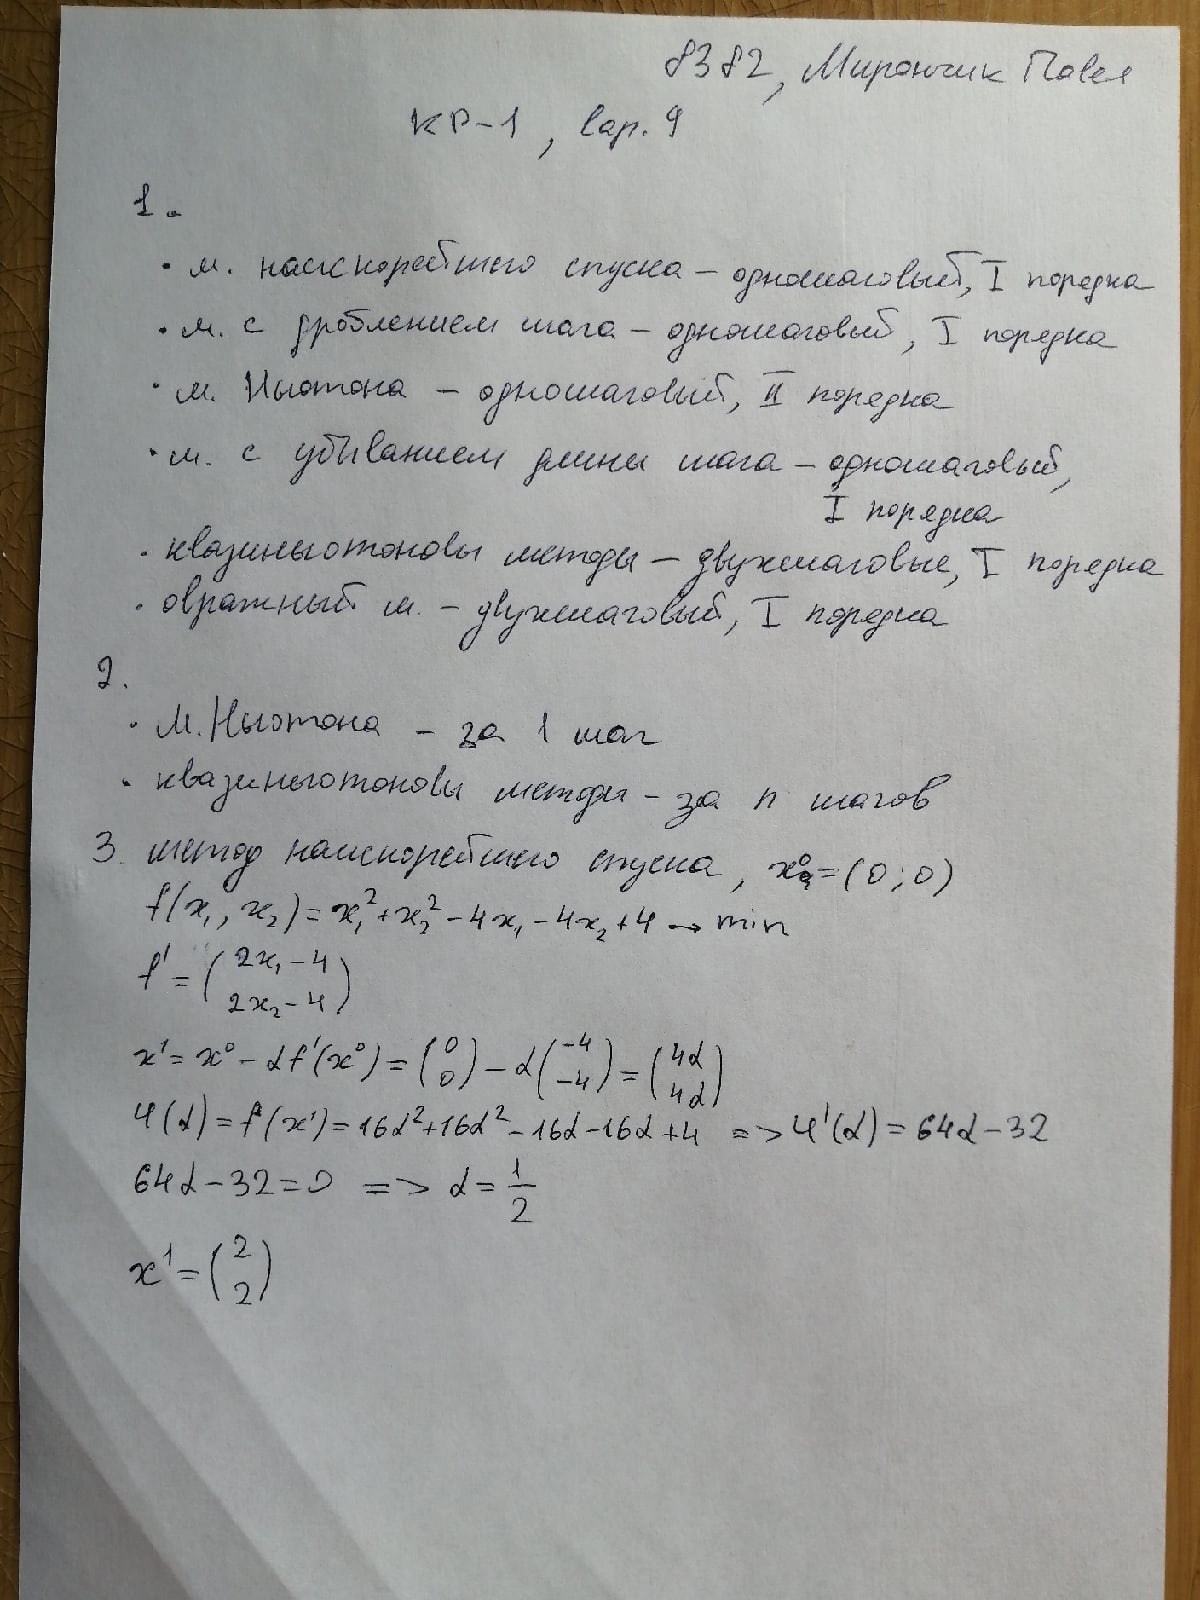 8382, Мирончик Павел
КР-1, вар. 9
1.
• м. наискорейшего спуска – одношаговый, I порядка
• м. с дроблением шага – одношаговый, I порядка
• м. Ньютона – одношаговый, II порядка
• м. с убыванием длины шага – одношаговый,
I порядка
• квазиньютоновы методы – двухшаговые, I порядка
• овражный м. – двухшаговый, I порядка
2.
• М. Ньютона – за 1 шаг
• квазиньютоновы методы – за n шагов
3. метод наискорейшего спуска, x⁰ = (0; 0)
f(x₁, x₂) = x₁² + x₂² − 4x₁ − 4x₂ + 4 → min
f' = (2x₁ − 4
2x₂ − 4)
x¹ = x⁰ − αf'(x⁰) = (0 0) − α(−4 −4) = (4α 4α)
φ(α) = f(x¹) = 16α² + 16α² − 16α − 16α + 4 => φ'(α) = 64α − 32
64α − 32 = 0 => α = 1/2
x¹ = (2
2)